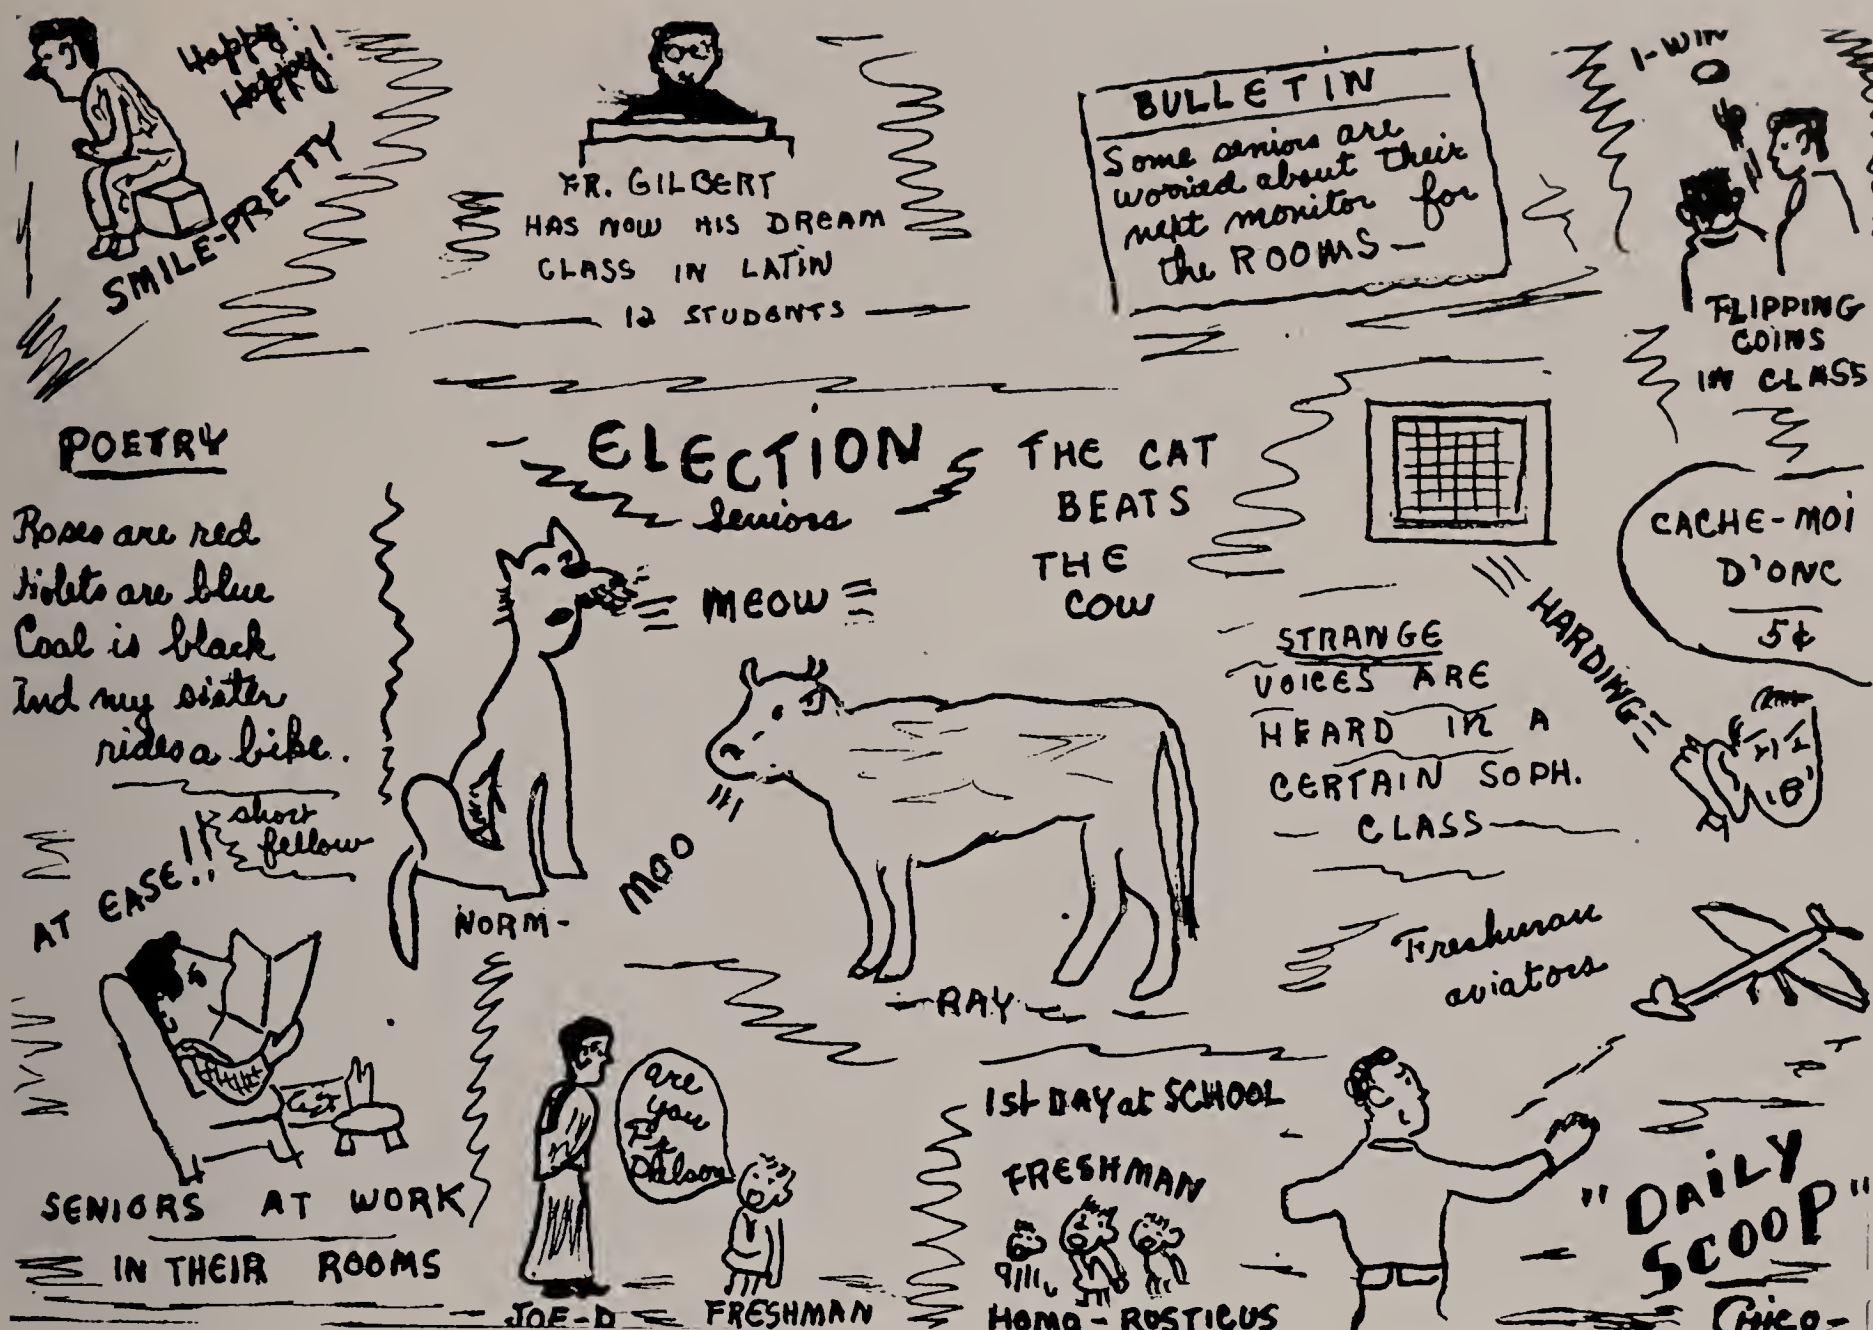 Happy!
Happy!
SMILE-PRETTY
FR. GILBERT
HAS NOW HIS DREAM
CLASS IN LATIN
12 STUDENTS
BULLETIN
Some seniors are
worried about their
next monitor for
the ROOMS—
I-WIN
FLIPPING
COINS
IN CLASS
POETRY
Roses are red
Violets are blue
Coal is black
And my sister
rides a bike.
short
fellow
ELECTION
Seniors
MEOW
THE CAT
BEATS
THE
COW
MOO
NORM-
-RAY-
HARDING
CACHE-MOI
D'ONC
5¢
STRANGE
VOICES ARE
HEARD IN A
CERTAIN SOPH.
CLASS
AT EASE!!
SENIORS AT WORK
IN THEIR ROOMS
are
you
Fr.
JOE-D
FRESHMAN
1st DAY at SCHOOL
FRESHMAN
HOMO-RUSTICUS
Freshman
aviators
"DAILY
SCOOP"
CHICO-